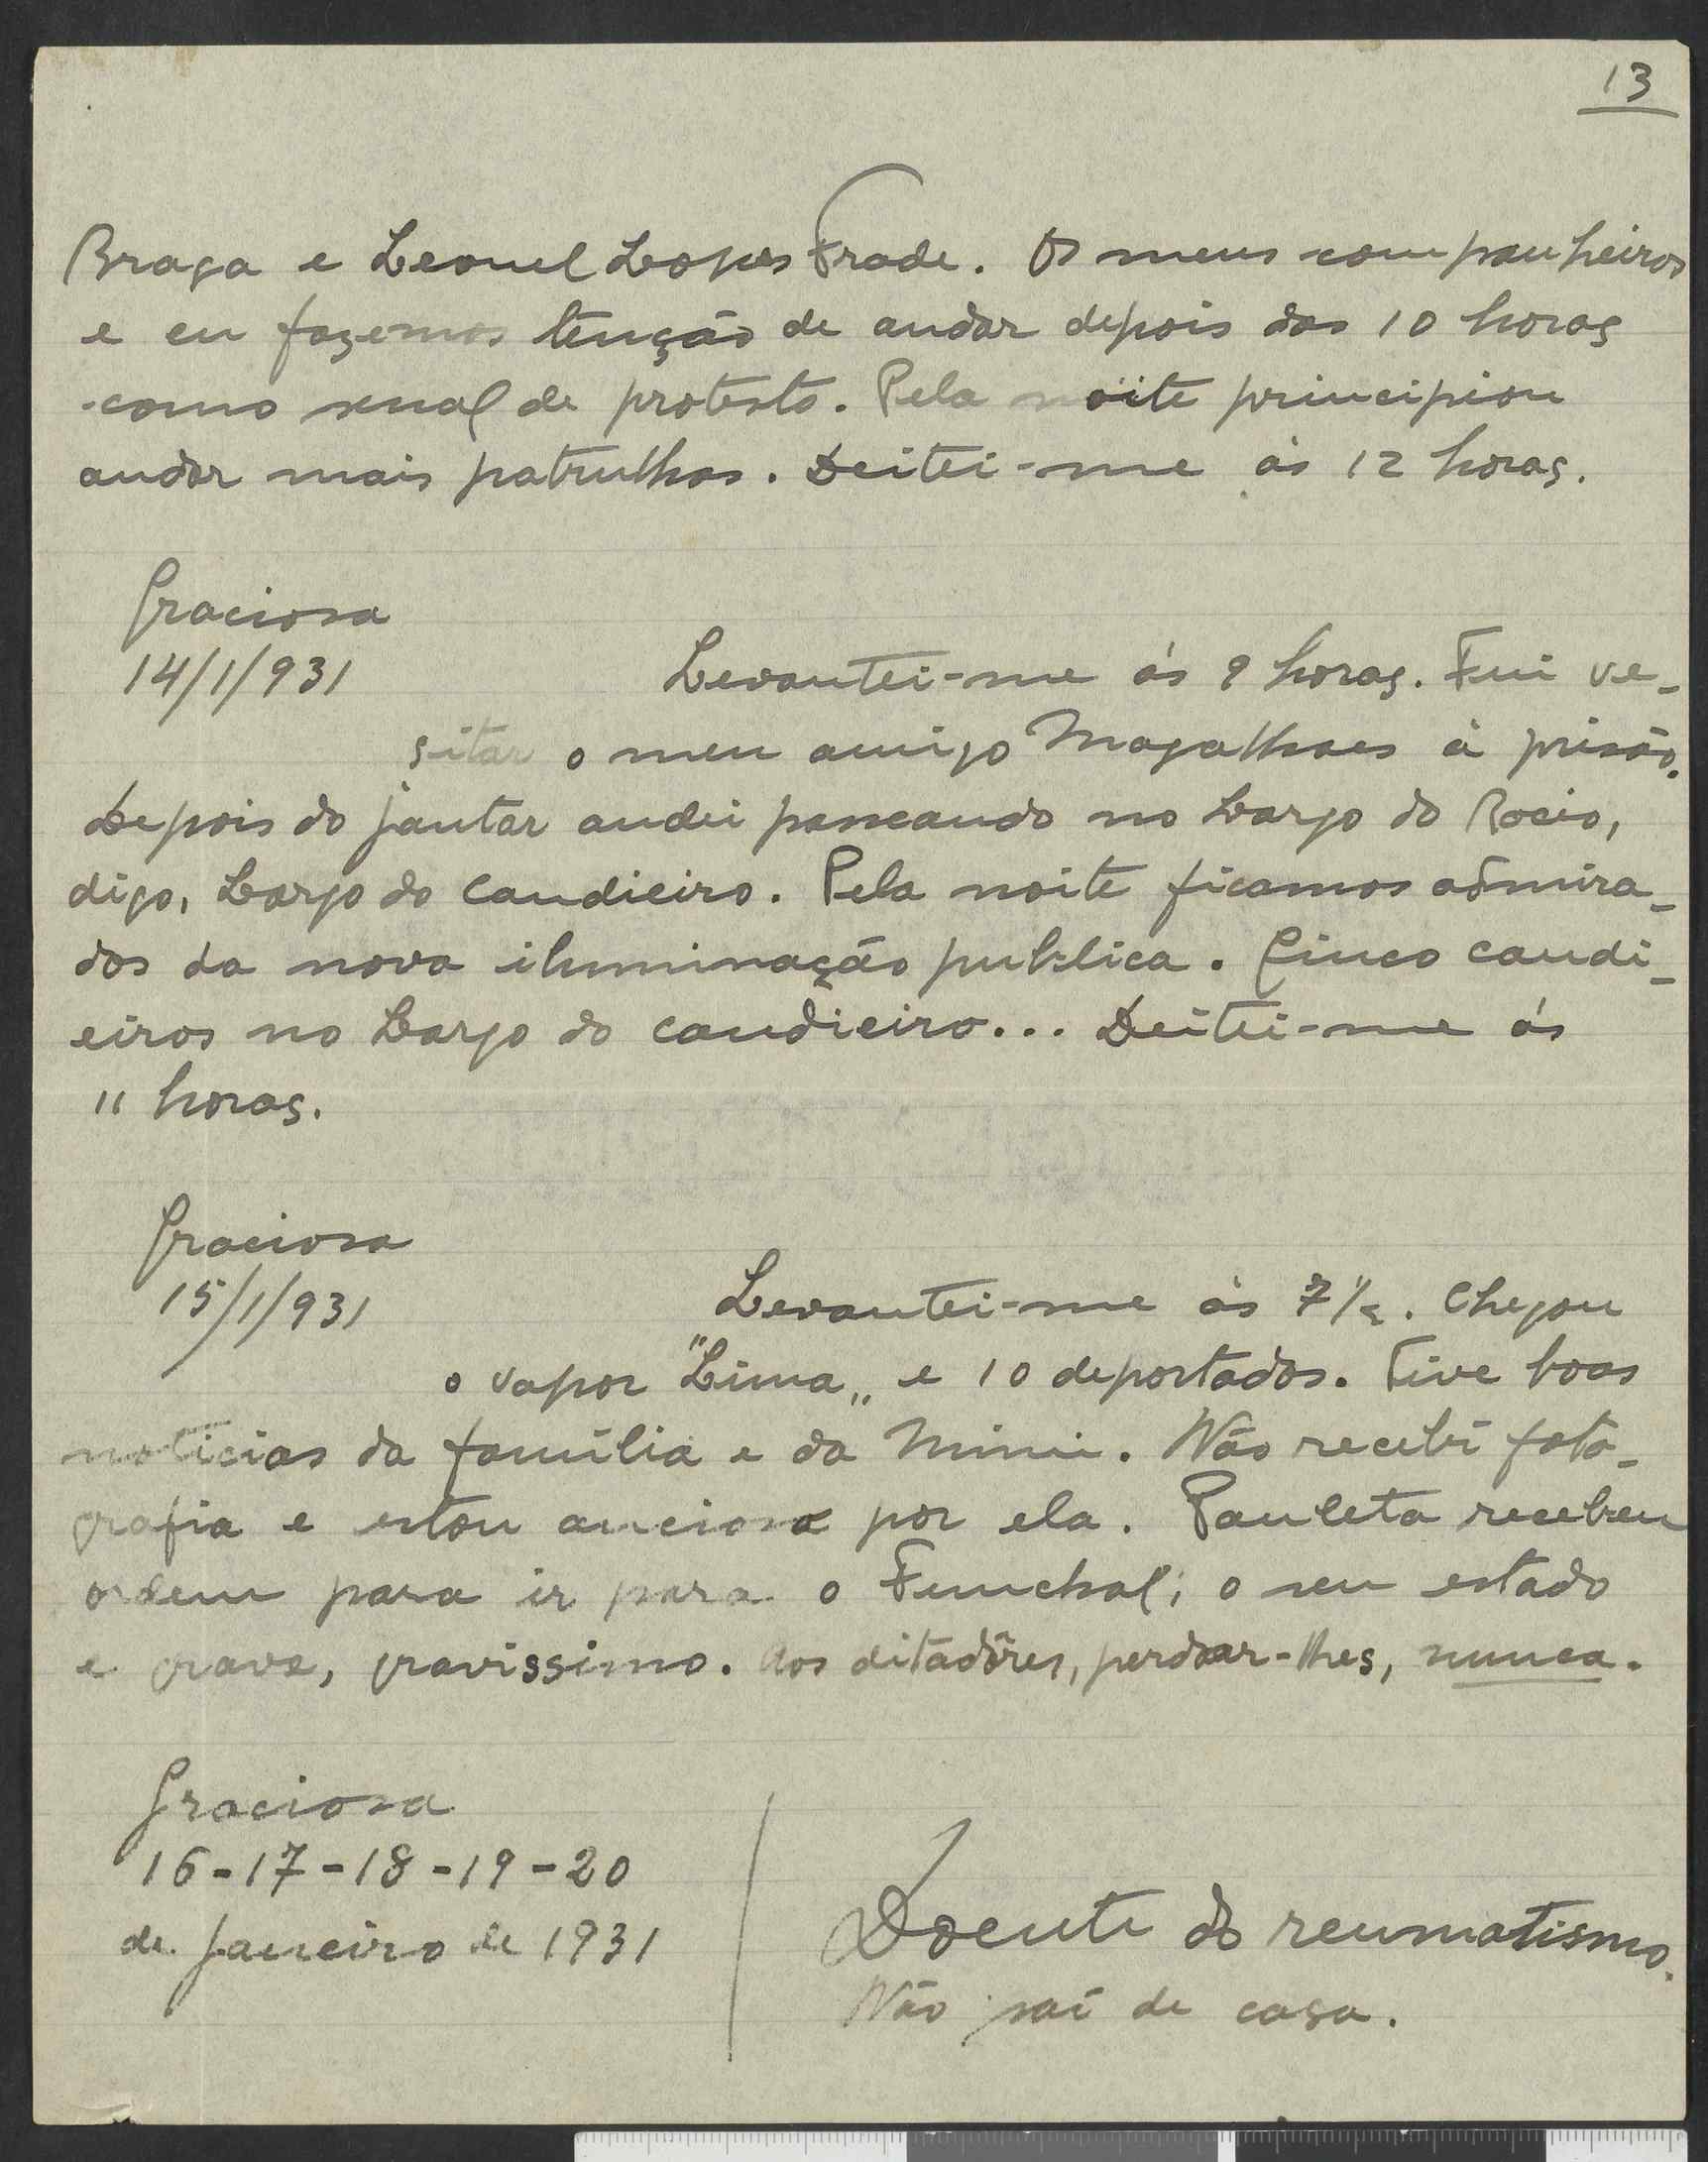 13
Braga e Leonel Lopes Frade. Os meus companheiros
e eu fazemos tenção de andar depois das 10 horas
como senal de protesto. Pela noite principiou
andar mais patrulhas. Deitei-me ás 12 horas.
Graciosa
14/1/931
Levantei-me ás 9 horas. Fui ve-
sitar o meu amigo Magalhaes á prisão.
Depois do jantar andei passeando no Largo do Rocio,
digo, Largo do Candieiro. Pela noite ficamos admira-
dos da nova iluminação publica. Cinco candi-
eiros no Largo do candieiro... Deitei-me ás
11 horas.
Graciosa
15/1/931
Levantei-me ás 7 1/2. Chegou
o vapor "Lima„ e 10 deportados. Tive boas
noticias da família e da Mimi. Não recebi foto-
grafia e estou ancioso por ela. Pauleta recebeu
ordem para ir para o Funchal; o seu estado
e grave, gravissimo. Aos ditadôres, perdoar-lhes, nunca.
Graciosa
16-17-18-19-20
de Janeiro de 1931
Doente do reumatismo.
Não saí de casa.